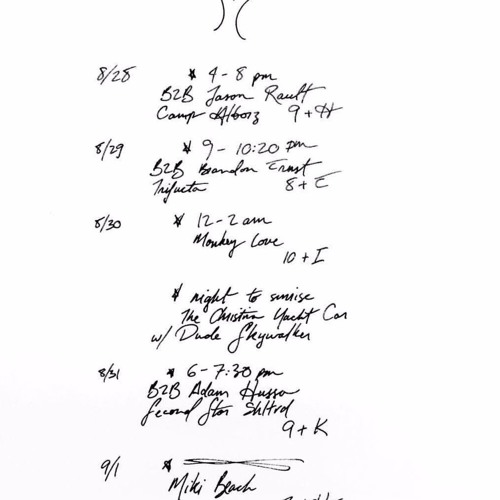 8/28 * 4-8 pm
B2B Jason Rault
Camp Alborz 9+H
8/29 * 9-10:20 pm
B2B Brandon Ernst
Trifucta 8+E
8/30 * 12-2 am
Monkey Love
10+I
* night to sunrise
The Christina Yacht Car
w/ Dude Skywalker
8/31 * 6-7:30 pm
B2B Adam Husa
Second Star
9+K
9/1 *
Miki Beach